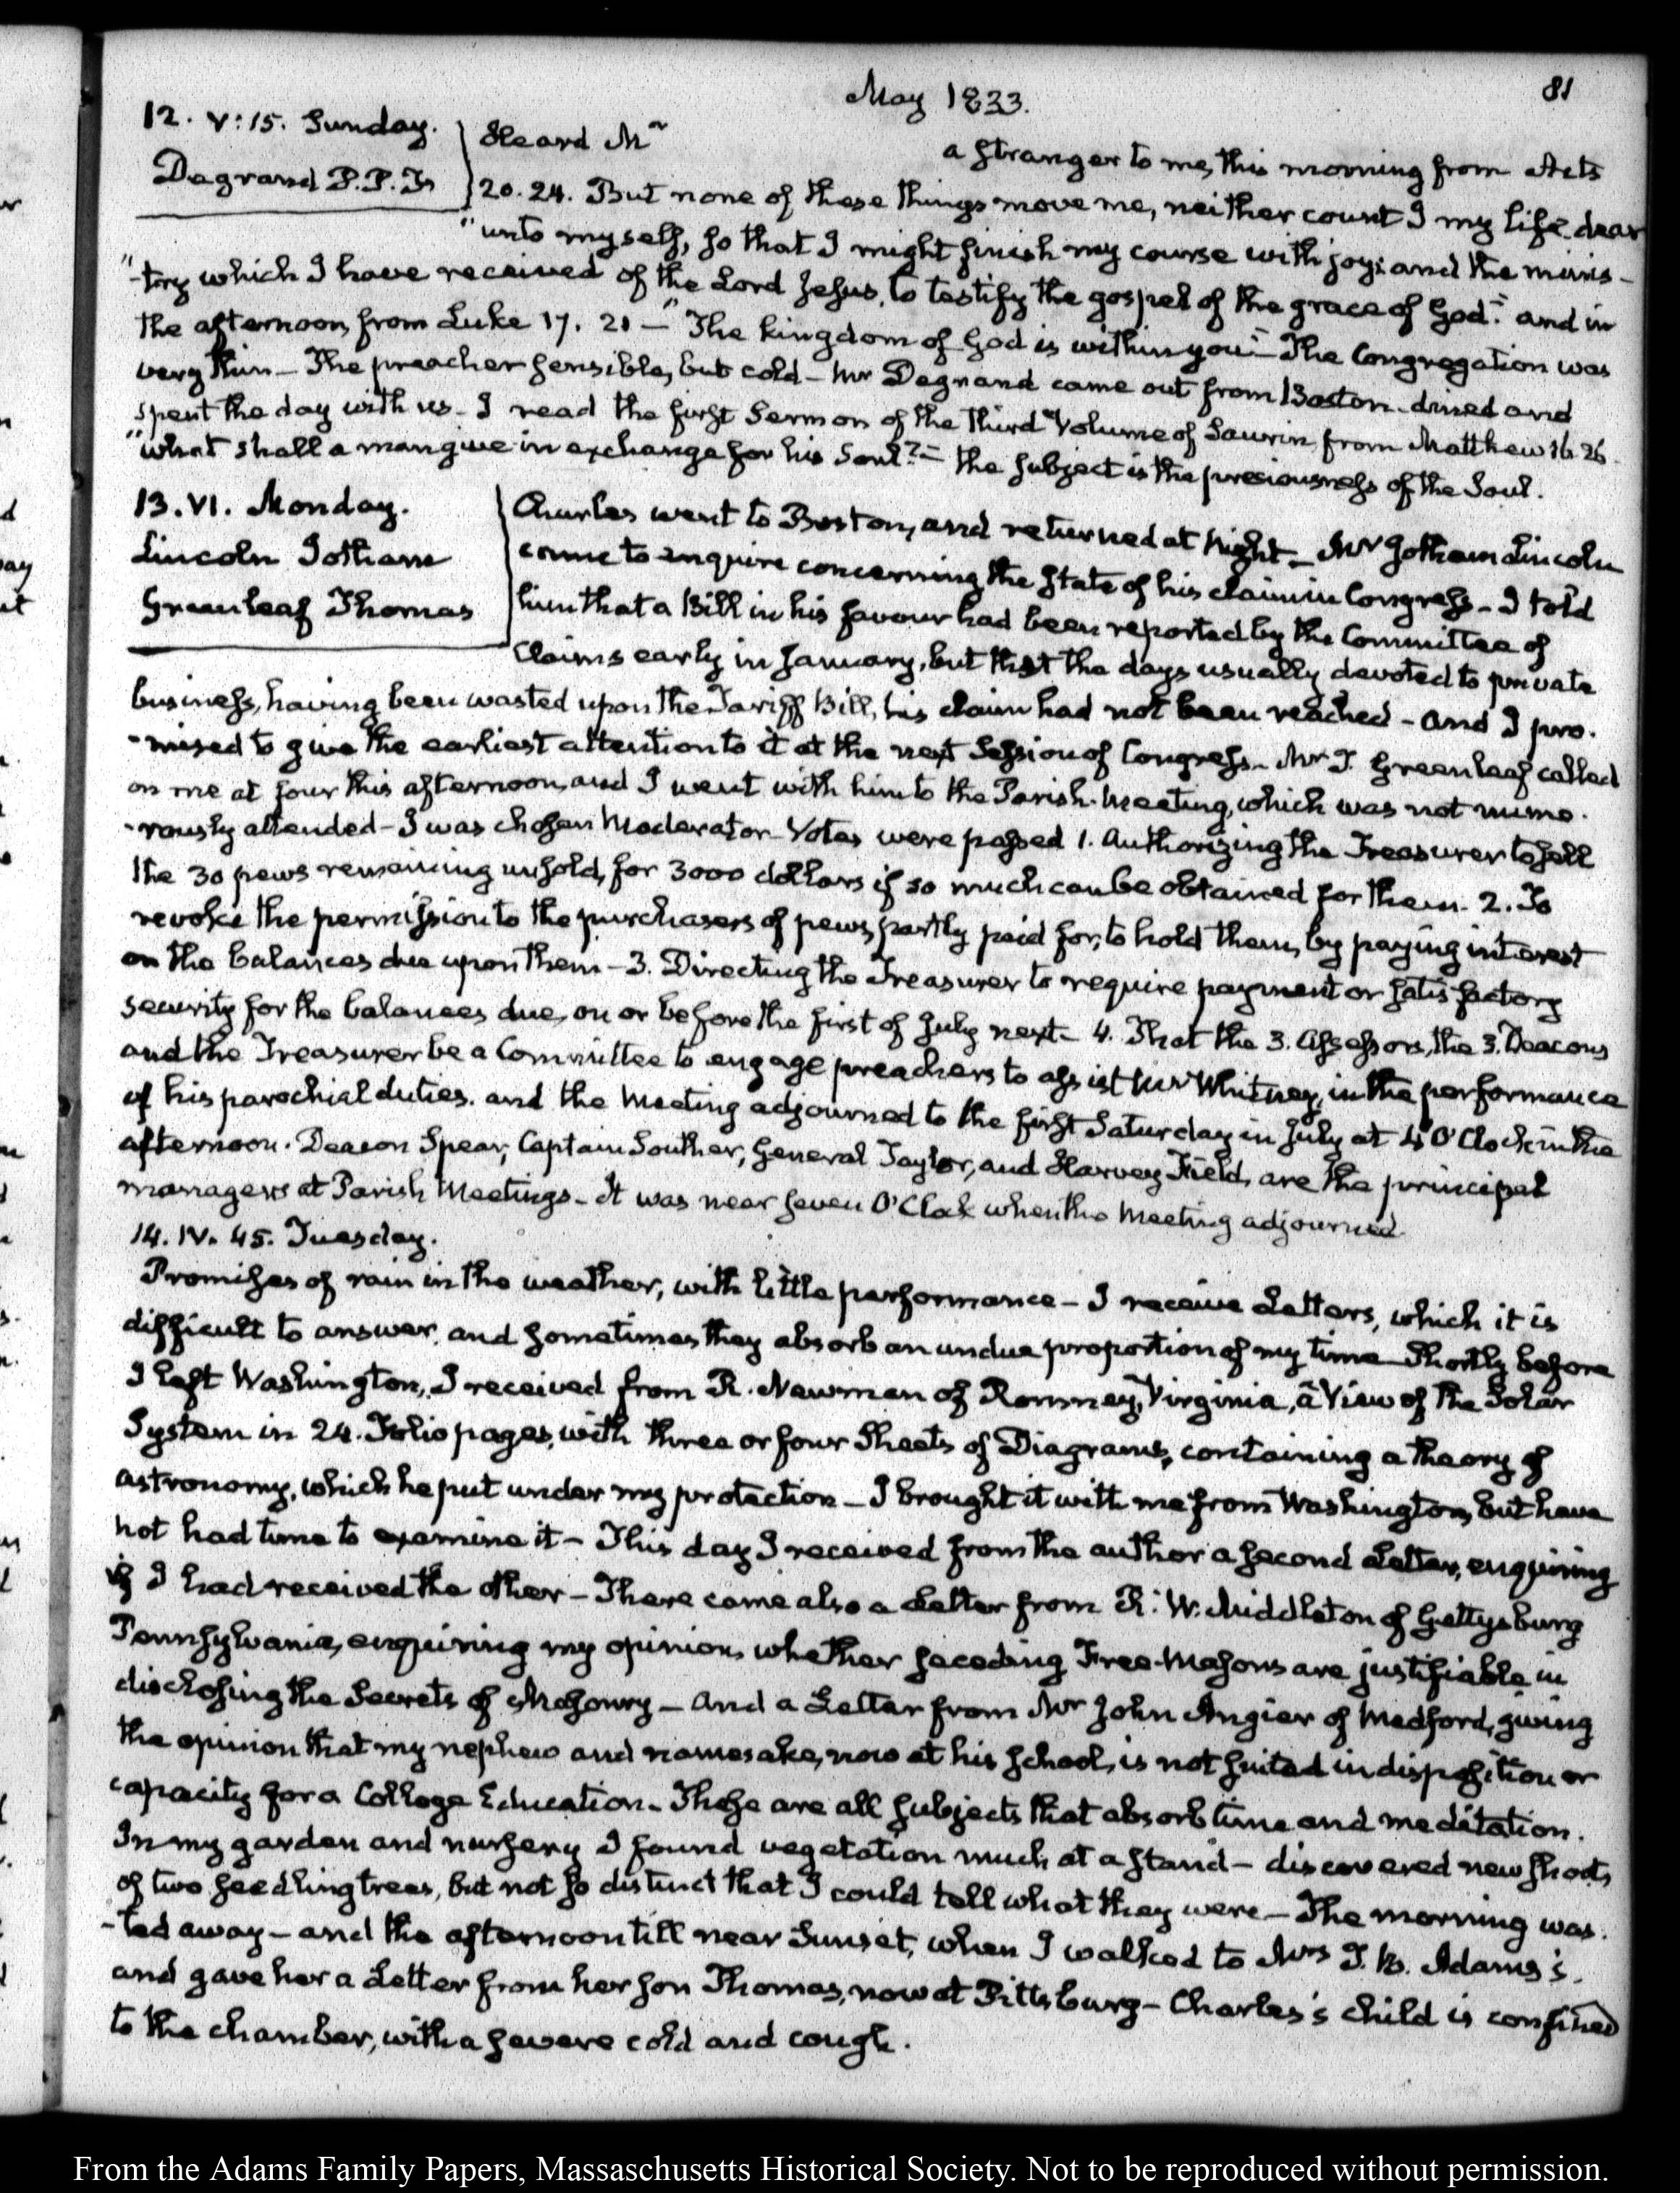 May 1833.
81
12. V:15. Sunday.
Degrand P.P.F.
Heard Mr
a stranger to me, this morning from Acts
20.24. But none of these things move me, neither count I my life dear
"unto myself, so that I might finish my course with joy; and the minis-
"-try which I have received of the Lord Jesus, to testify the gospel of the grace of God." and in
the afternoon, from Luke 17. 21 — "The kingdom of God is within you" — The Congregation was
very thin — The preacher sensible, but cold — Mr Degrand came out from Boston. dined and
spent the day with us — I read the first Sermon of the third Volume of Saurin, from Matthew 16.26.
"what shall a man give in exchange for his Soul?" — the subject is the preciousness of the Soul.
13. VI. Monday.
Lincoln Jotham
Greenleaf Thomas
Charles went to Boston, and returned at Night — Mr Jotham Lincoln
came to enquire concerning the state of his claim in Congress — I told
him that a Bill in his favour had been reported by the Committee of
Claims early in January, but that the days usually devoted to private
business, having been wasted upon the Tariff Bill, his claim had not been reached — and I pro-
-mised to give the earliest attention to it at the next Session of Congress. Mr T. Greenleaf called
on me at four this afternoon, and I went with him to the Parish-Meeting, which was not nume-
-rously attended — I was chosen Moderator. Votes were passed 1. Authorizing the Treasurer to sell
the 30 pews remaining unsold, for 3000 dollars if so much can be obtained for them. 2. To
revoke the permission to the purchasers of pews, partly paid for, to hold them, by paying interest
on the balances due upon them — 3. Directing the Treasurer to require payment or satisfactory
security for the balances due, on or before the first of July next — 4. That the 3. Assessors, the 3. Deacons
and the Treasurer be a Committee to engage preachers to assist Mr Whitney, in the performance
of his parochial duties. and the Meeting adjourned to the first Saturday in July at 4 O'Clock in the
afternoon. Deacon Spear, Captain Souther, General Taylor, and Harvey Field, are the principal
managers at Parish Meetings — It was near seven O'Clock when the Meeting adjourned.
14. IV. 45. Tuesday.
Promises of rain in the weather, with little performance — I receive Letters, which it is
difficult to answer, and sometimes they absorb an undue proportion of my time — Shortly before
I left Washington, I received from R. Newman of Romney, Virginia, a View of the Solar
System in 24. Folio pages, with three or four Sheets of Diagrams, containing a theory of
astronomy, which he put under my protection — I brought it with me from Washington, but have
not had time to examine it — This day I received from the author a second Letter, enquiring
if I had received the other — There came also a Letter from R. W. Middleton of Gettysburg
Pennsylvania, enquiring my opinion, whether seceding Free-Masons are justifiable in
disclosing the Secrets of Masonry — and a Letter from Mr John Angier of Medford, giving
the opinion that my nephew and namesake, now at his school, is not suited in disposition or
capacity for a College Education — These are all subjects that absorb time and meditation.
In my garden and nursery I found vegetation much at a stand — discovered new shoots
of two seedling trees, but not so distinct that I could tell what they were — The morning was-
-ted away — and the afternoon till near Sunset, when I walked to Mrs T. B. Adams's.
and gave her a Letter from her son Thomas, now at Pittsburg — Charles's child is confined
to the chamber, with a severe cold and cough.
From the Adams Family Papers, Massachusetts Historical Society. Not to be reproduced without permission.